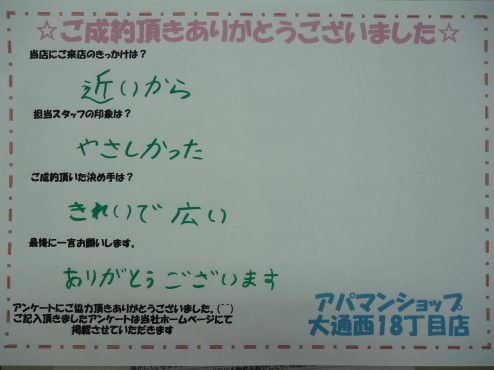 ☆ご成約頂きありがとうございました☆
当店にご来店のきっかけは？
近いから
担当スタッフの印象は？
やさしかった
ご成約頂いた決め手は？
きれいで広い
最後に一言お願いします。
ありがとうございます
アンケートにご協力頂きありがとうございました。(⌒⌒)
ご記入頂きましたアンケートは当社ホームページにて
掲載させていただきます
アパマンショップ
大通西18丁目店